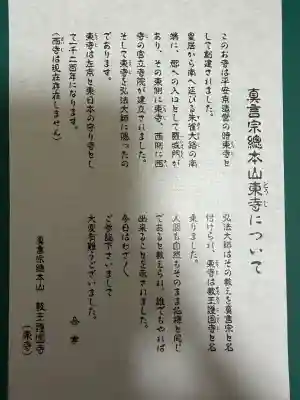 真言宗總本山東寺について
このお寺は平安京造営の時東寺と
して創建されました。
皇居から南へ延びる朱雀大路の南
端に、都への入口として羅城門が
あり、その東側に東寺、西側に西
寺の官立寺院が建立されました。
そして東寺を弘法大師に賜ったの
であります。
東寺は左京と東日本の守り寺とし
て一千二百年になります。
（西寺は現在存在しません）
弘法大師はその教えを真言宗と名
付けられ、東寺は教王護国寺と名
乗りました。
人間も自然もそのまま仏様と同じ
であると教えられ、誰でもやれば
出来ることを示されました。
今日はわざわざ
ご参詣下さいまして
大変有難うございました。
合掌
真言宗總本山 教王護国寺
（東寺）